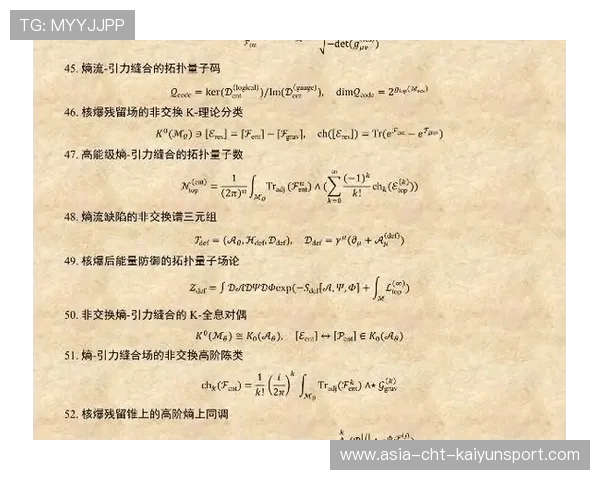 TG: MYYJJPP
45. 熵流-引力缝合的拓扑量子码
𝒬_code = ker(𝒟_ent^(logical))/Im(𝒟_ent^(gauge)), dim𝒬_code = 2^
46. 核爆残留场的非交换 K-理论分类
K⁰(ℳ_θ) ∋ [ℰ_res] = [ℱ_ent] − [ℱ_grav], ch([ℰ_res]) = Tr(e^ℱ_ent − e^ℱ_grav)
47. 高能级熵-引力缝合的拓扑量子数
𝒩_top^(ent) = 1/(2π)^n ∫_ℳ_θ Tr_adj(ℱ_ent^n) ∧ (∑_{k=0}^{∞} (−1)^k/k! ch_k(ℰ_top^(k)))
48. 熵流缺陷的非交换谱三元组
𝒯_def = (𝒜_θ, ℋ_def, 𝒟_def), 𝒟_def = γ^μ(∂_μ + 𝒜_N^(def))
49. 核爆后能量防御的拓扑量子场论
𝒵_def = ∫ 𝒟𝒜𝒟Ψ𝒟Φexp(−S_def[𝒜, Ψ, Φ] + ∫_ℳ ℒ_top^(∞))
50. 非交换熵-引力缝合的 K-全息对偶
K⁰(ℳ_θ) ≅ K₀(𝒜_θ), [ℰ_ent] ↔ [𝒫_cat] ∈ K₀(𝒜_θ)
51. 熵-引力缝合场的非交换高阶陈类
ch_k(ℱ_ent) = 1/k! (i/2π)^k ∫_ℳ_θ Tr_adj(ℱ_ent^k) ∧⋆ 𝒢_grav^(k)
52. 核爆残留锥上的高阶熵上同调
www.asia-cht-kaiyunsport.com